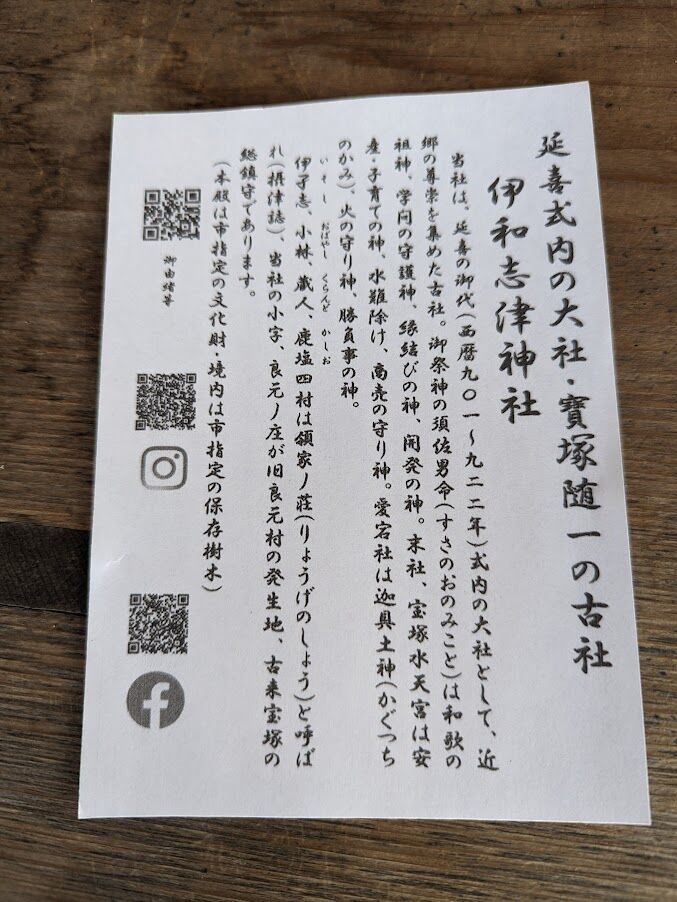 延喜式内の大社・寶塚随一の古社
伊和志津神社
当社は、延喜の御代(西暦九〇一～九二二年)式内の大社として、近
郷の尊崇を集めた古社。御祭神の須佐男命(すさのおのみこと)は和歌の
祖神、学問の守護神、縁結びの神、開発の神。末社、宝塚水天宮は安
産・子育ての神、水難除け、商売の守り神。愛宕社は迦具土神(かぐつち
のかみ)、火の守り神、勝負事の神。
いそし おばやし くらんど かしお
伊孑志、小林、蔵人、鹿塩四村は領家ノ荘(りょうげのしょう)と呼ば
れ(摂津誌)、当社の小字、良元ノ庄が旧良元村の発生地、古来宝塚の
総鎮守であります。
(本殿は市指定の文化財・境内は市指定の保存樹木)
御由緒等